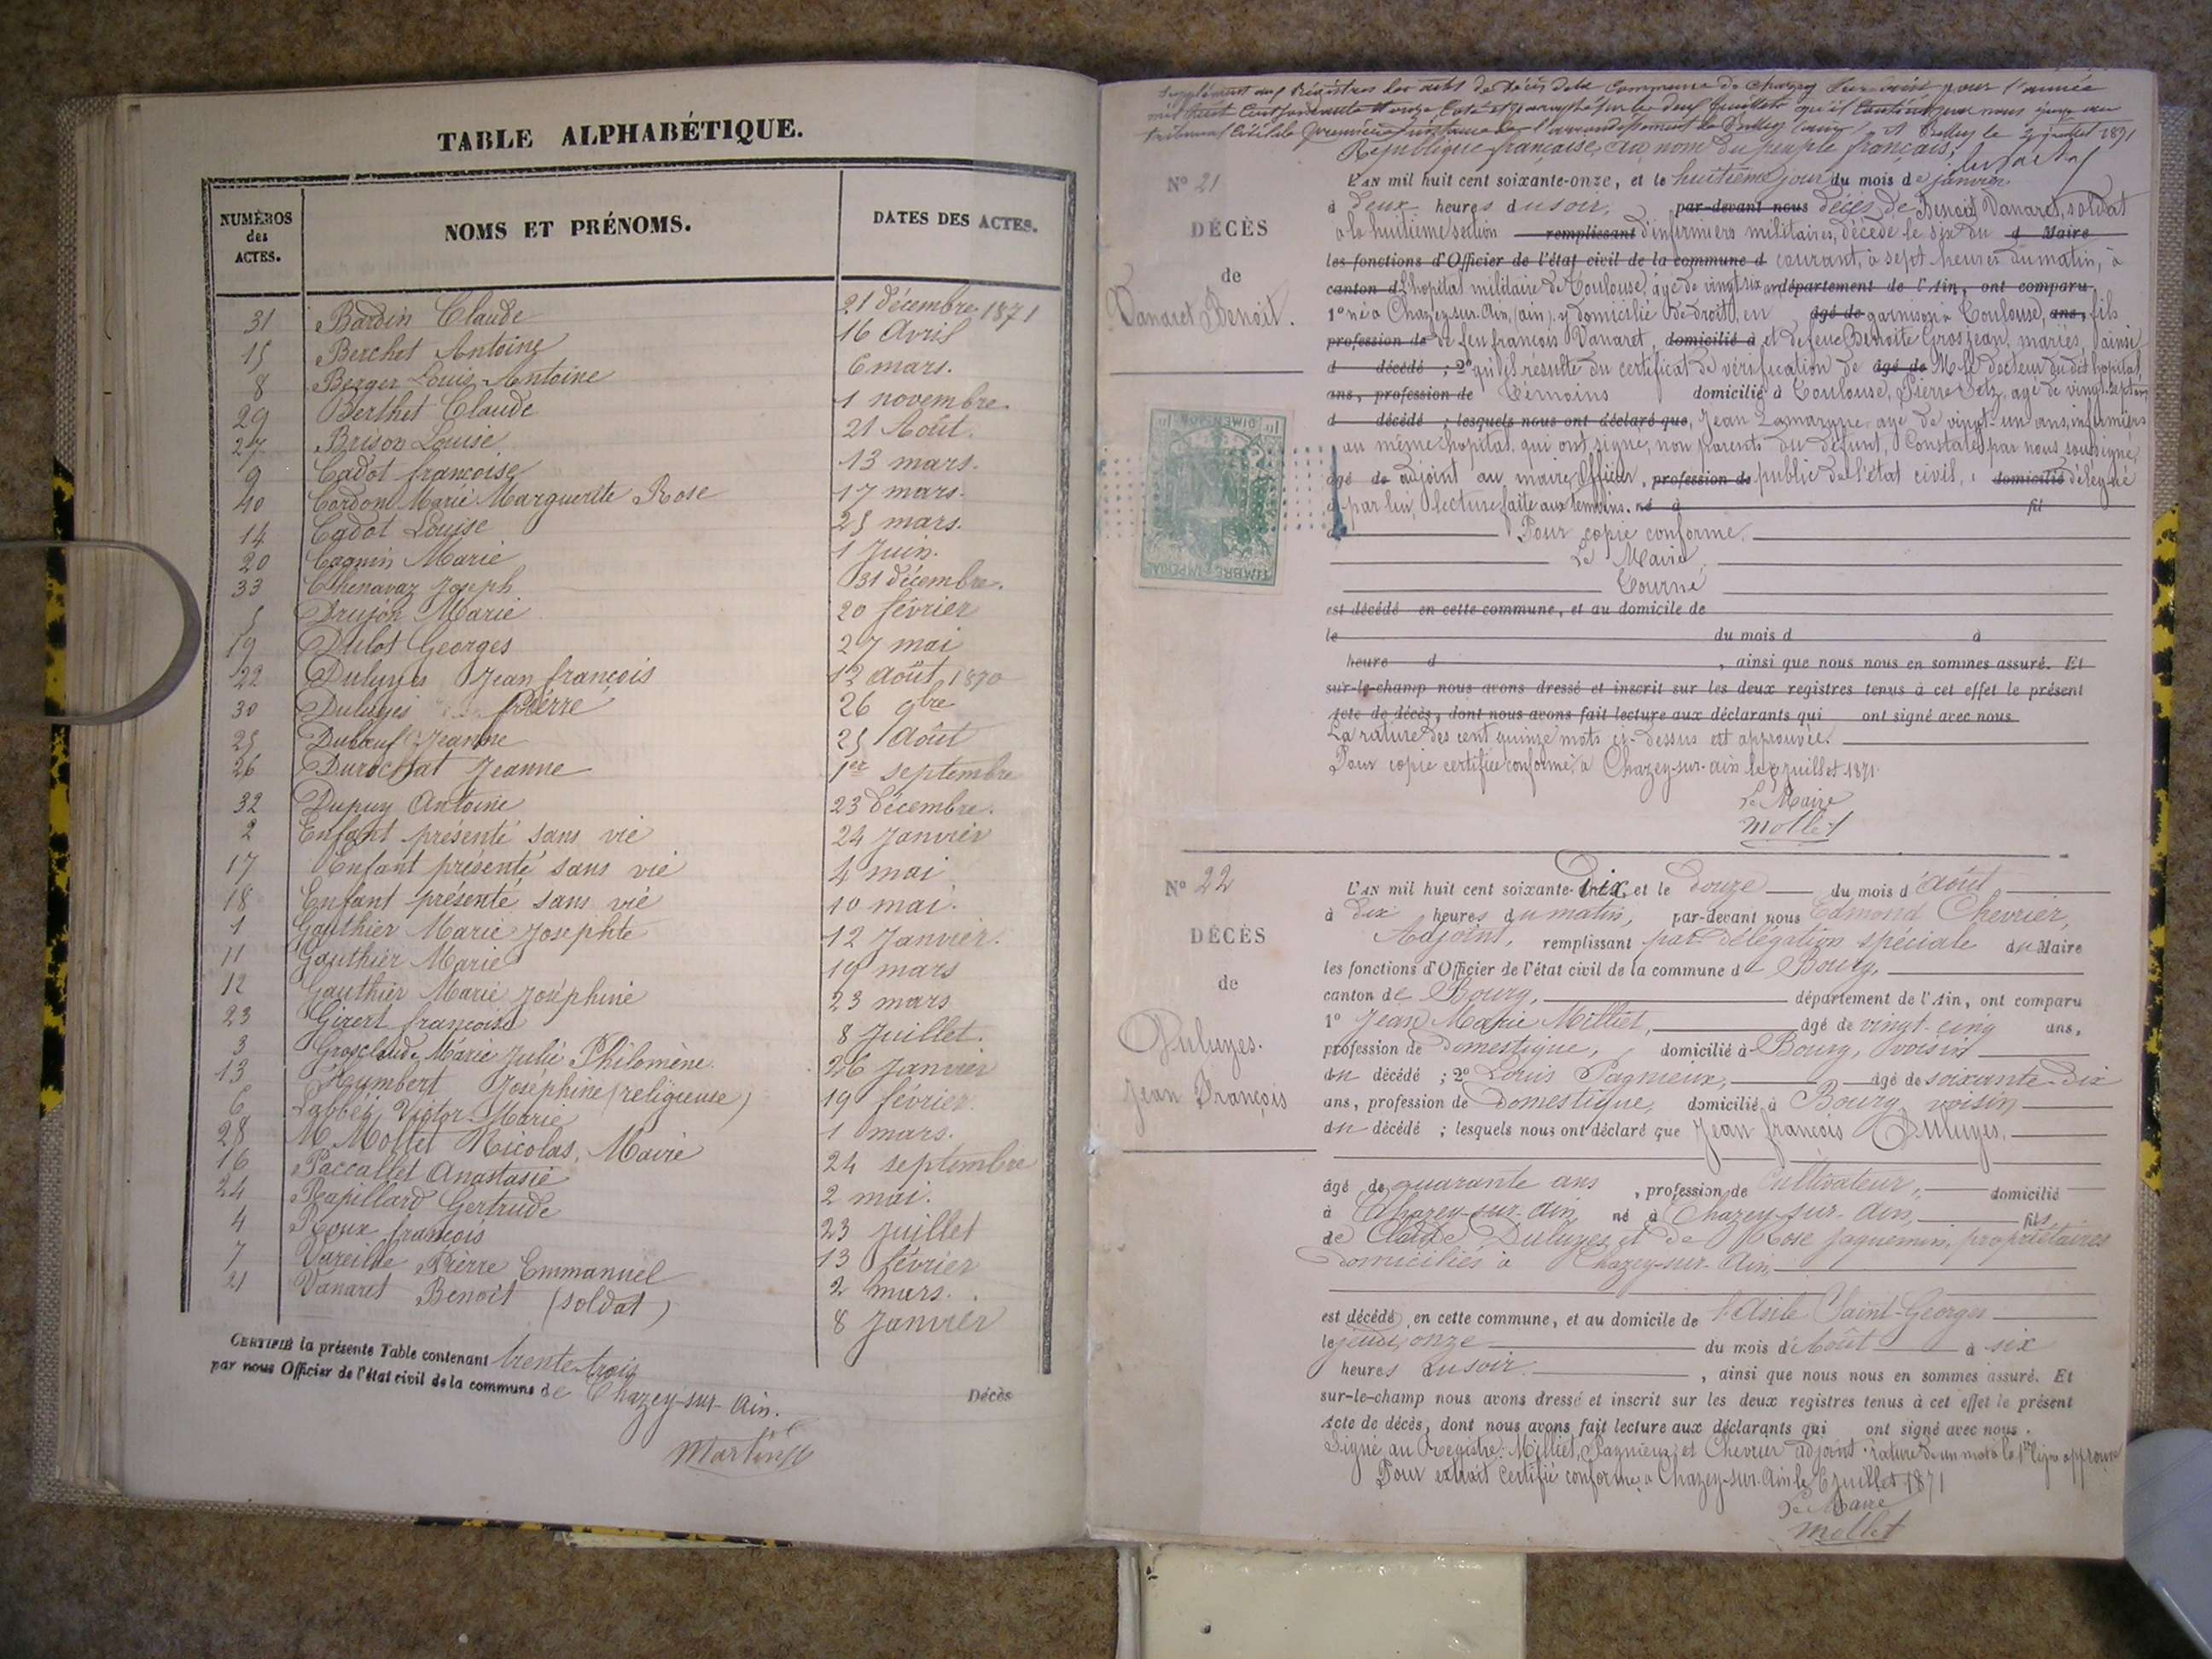 TABLE ALPHABÉTIQUE.
NUMÉROS des ACTES.
NOMS ET PRÉNOMS.
DATES DES ACTES.
31 Bardin Claude 21 décembre 1871
15 Berchet Antoine 16 Avril
8 Berger Louis Antoine 6 mars.
29 Berthet Claude 1 novembre.
27 Brison Louise 21 Août.
9 Cadot françoise 13 mars.
40 Cordon Marie Marguerite Rose 17 mars.
14 Cadot Louise 25 mars.
20 Cagnin Marie 1 Juin.
33 Chenavaz Joseph 31 décembre.
5 Drujon Marie 20 février
19 Dulot Georges 27 mai
22 Duluyes Jean françois 12 août 1870
30 Duluyes Pierre 26 9bre
25 Dubœuf Jeanne 25 Août
26 Durochat Jeanne 1er septembre
32 Dupuy Antoine 23 décembre.
2 Enfant présenté sans vie 24 Janvier
17 Enfant présenté sans vie 4 mai
18 Enfant présenté sans vie 10 mai.
1 Gauthier Marie Josephte 12 Janvier.
11 Gauthier Marie 19 mars
12 Gauthier Marie Joséphine 23 mars
23 Girert françoise 8 Juillet.
3 Grosclaude Marie Julie Philomène 26 Janvier
13 Humbert Joséphine (religieuse) 19 février.
6 Labbé Victor Marie 1 mars.
28 M. Mollet Nicolas, Maire 24 septembre
16 Paccallet Anastasie 2 mai.
24 Rapillard Gertrude 23 juillet
4 Roux françois 13 février
7 Vareille Pierre Emmanuel 2 mars.
21 Vanaret Benoit (soldat) 8 Janvier
CERTIFIÉ la présente Table contenant trente-trois Décès
par nous Officier de l'état civil de la commune de Chazey-sur-Ain.
Supplément aux Régistres des acts de Décès de la Commune de Chazey sur Ain pour l'année
mil huit Cent soixante onze, Coté et paraphé sur les deux feuillets qu'il Contient par nous juge au
tribunal Civil de première instance de l'arrondissement de Belley (Ain) à Belley le 3 juillet 1871
République française, au nom du peuple français;
N° 21
DÉCÈS
de
Vanaret Benoit.
L'AN mil huit cent soixante-onze, et le huitième jour du mois de janvier
à deux heures du soir, par-devant nous décès de Benoit Vanaret, soldat
à la huitième section remplissant d'infirmiers militaires, décédé le six du d Maire
les fonctions d'Officier de l'état civil de la commune d courant, à sept heures du matin, à
canton d l'hopital militaire de Toulouse, âgé de vingt six an département de l'Ain, ont comparu
1° né à Chazey-sur-Ain, (ain), y domicilié de droit, en âgé de garnison à Toulouse, ans, fils
profession de de feu françois Vanaret, domicilié à et de feue Benoite Grosjean, mariés, ainsi
d décédé ; 2° qu'il résulte du certificat de vérification de âgé de Mr le docteur du dit hopital,
ans, profession de Témoins domicilié à Toulouse, Pierre Betz, agé de vingt-sept ans
d décédé ; lesquels nous ont déclaré que, Jean Lamarque agé de vingt-un ans, infirmiers
au même hopital, qui ont signé, non parents du défunt, Constaté par nous soussigné,
âgé de adjoint au maire, Officier, profession de public de l'état civil, domicilié délégué
à par lui, lecture faite aux témoins. né à fil
d Pour copie conforme.
Le Maire,
Tourné
TIMBRE IMPÉRIAL
DIMENSION
est décédé en cette commune, et au domicile de
le du mois d à
heure d , ainsi que nous nous en sommes assuré. Et
sur-le-champ nous avons dressé et inscrit sur les deux registres tenus à cet effet le présent
Acte de décès, dont nous avons fait lecture aux déclarants qui ont signé avec nous
La rature des cent quinze mots ci-dessus est approuvée.
Pour copie certifiée conforme, à Chazey-sur-ain le juillet 1871
Le Maire
Mollet
N° 22
DÉCÈS
de
Duluyes.
Jean François
L'AN mil huit cent soixante-Dix, et le Douze du mois d'août
à dix heures du matin, par-devant nous Edmond Chevrier,
Adjoint, remplissant par délégation spéciale du Maire
les fonctions d'Officier de l'état civil de la commune de Bourg,
canton de Bourg, département de l'Ain, ont comparu
1° Jean Marie Milliet, âgé de vingt-cinq ans,
profession de Domestique, domicilié à Bourg, voisin
du décédé ; 2° Louis Pagnieux, âgé de soixante-dix
ans, profession de Domestique, domicilié à Bourg, voisin
du décédé ; lesquels nous ont déclaré que Jean françois Duluyes,
âgé de quarante ans, profession de Cultivateur, domicilié
à Chazey-sur-Ain, né à Chazey-sur-Ain, fils
de Claude Duluyes et de Rose Jaquemin, propriétaires
domiciliés à Chazey-sur-Ain,
est décédé en cette commune, et au domicile de l'Asile Saint-Georges
le jeudi, onze du mois d'Août à six
heures du soir , ainsi que nous nous en sommes assuré. Et
sur-le-champ nous avons dressé et inscrit sur les deux registres tenus à cet effet le présent
Acte de décès, dont nous avons fait lecture aux déclarants qui ont signé avec nous.
Signé au Registre: Milliet, Pagnieux et Chevrier adjoint. rature d'un mot à la 1re ligne approuvé
Pour extrait Certifié conforme, à Chazey-sur-Ain le 6 juillet 1871
Le Maire
Mollet